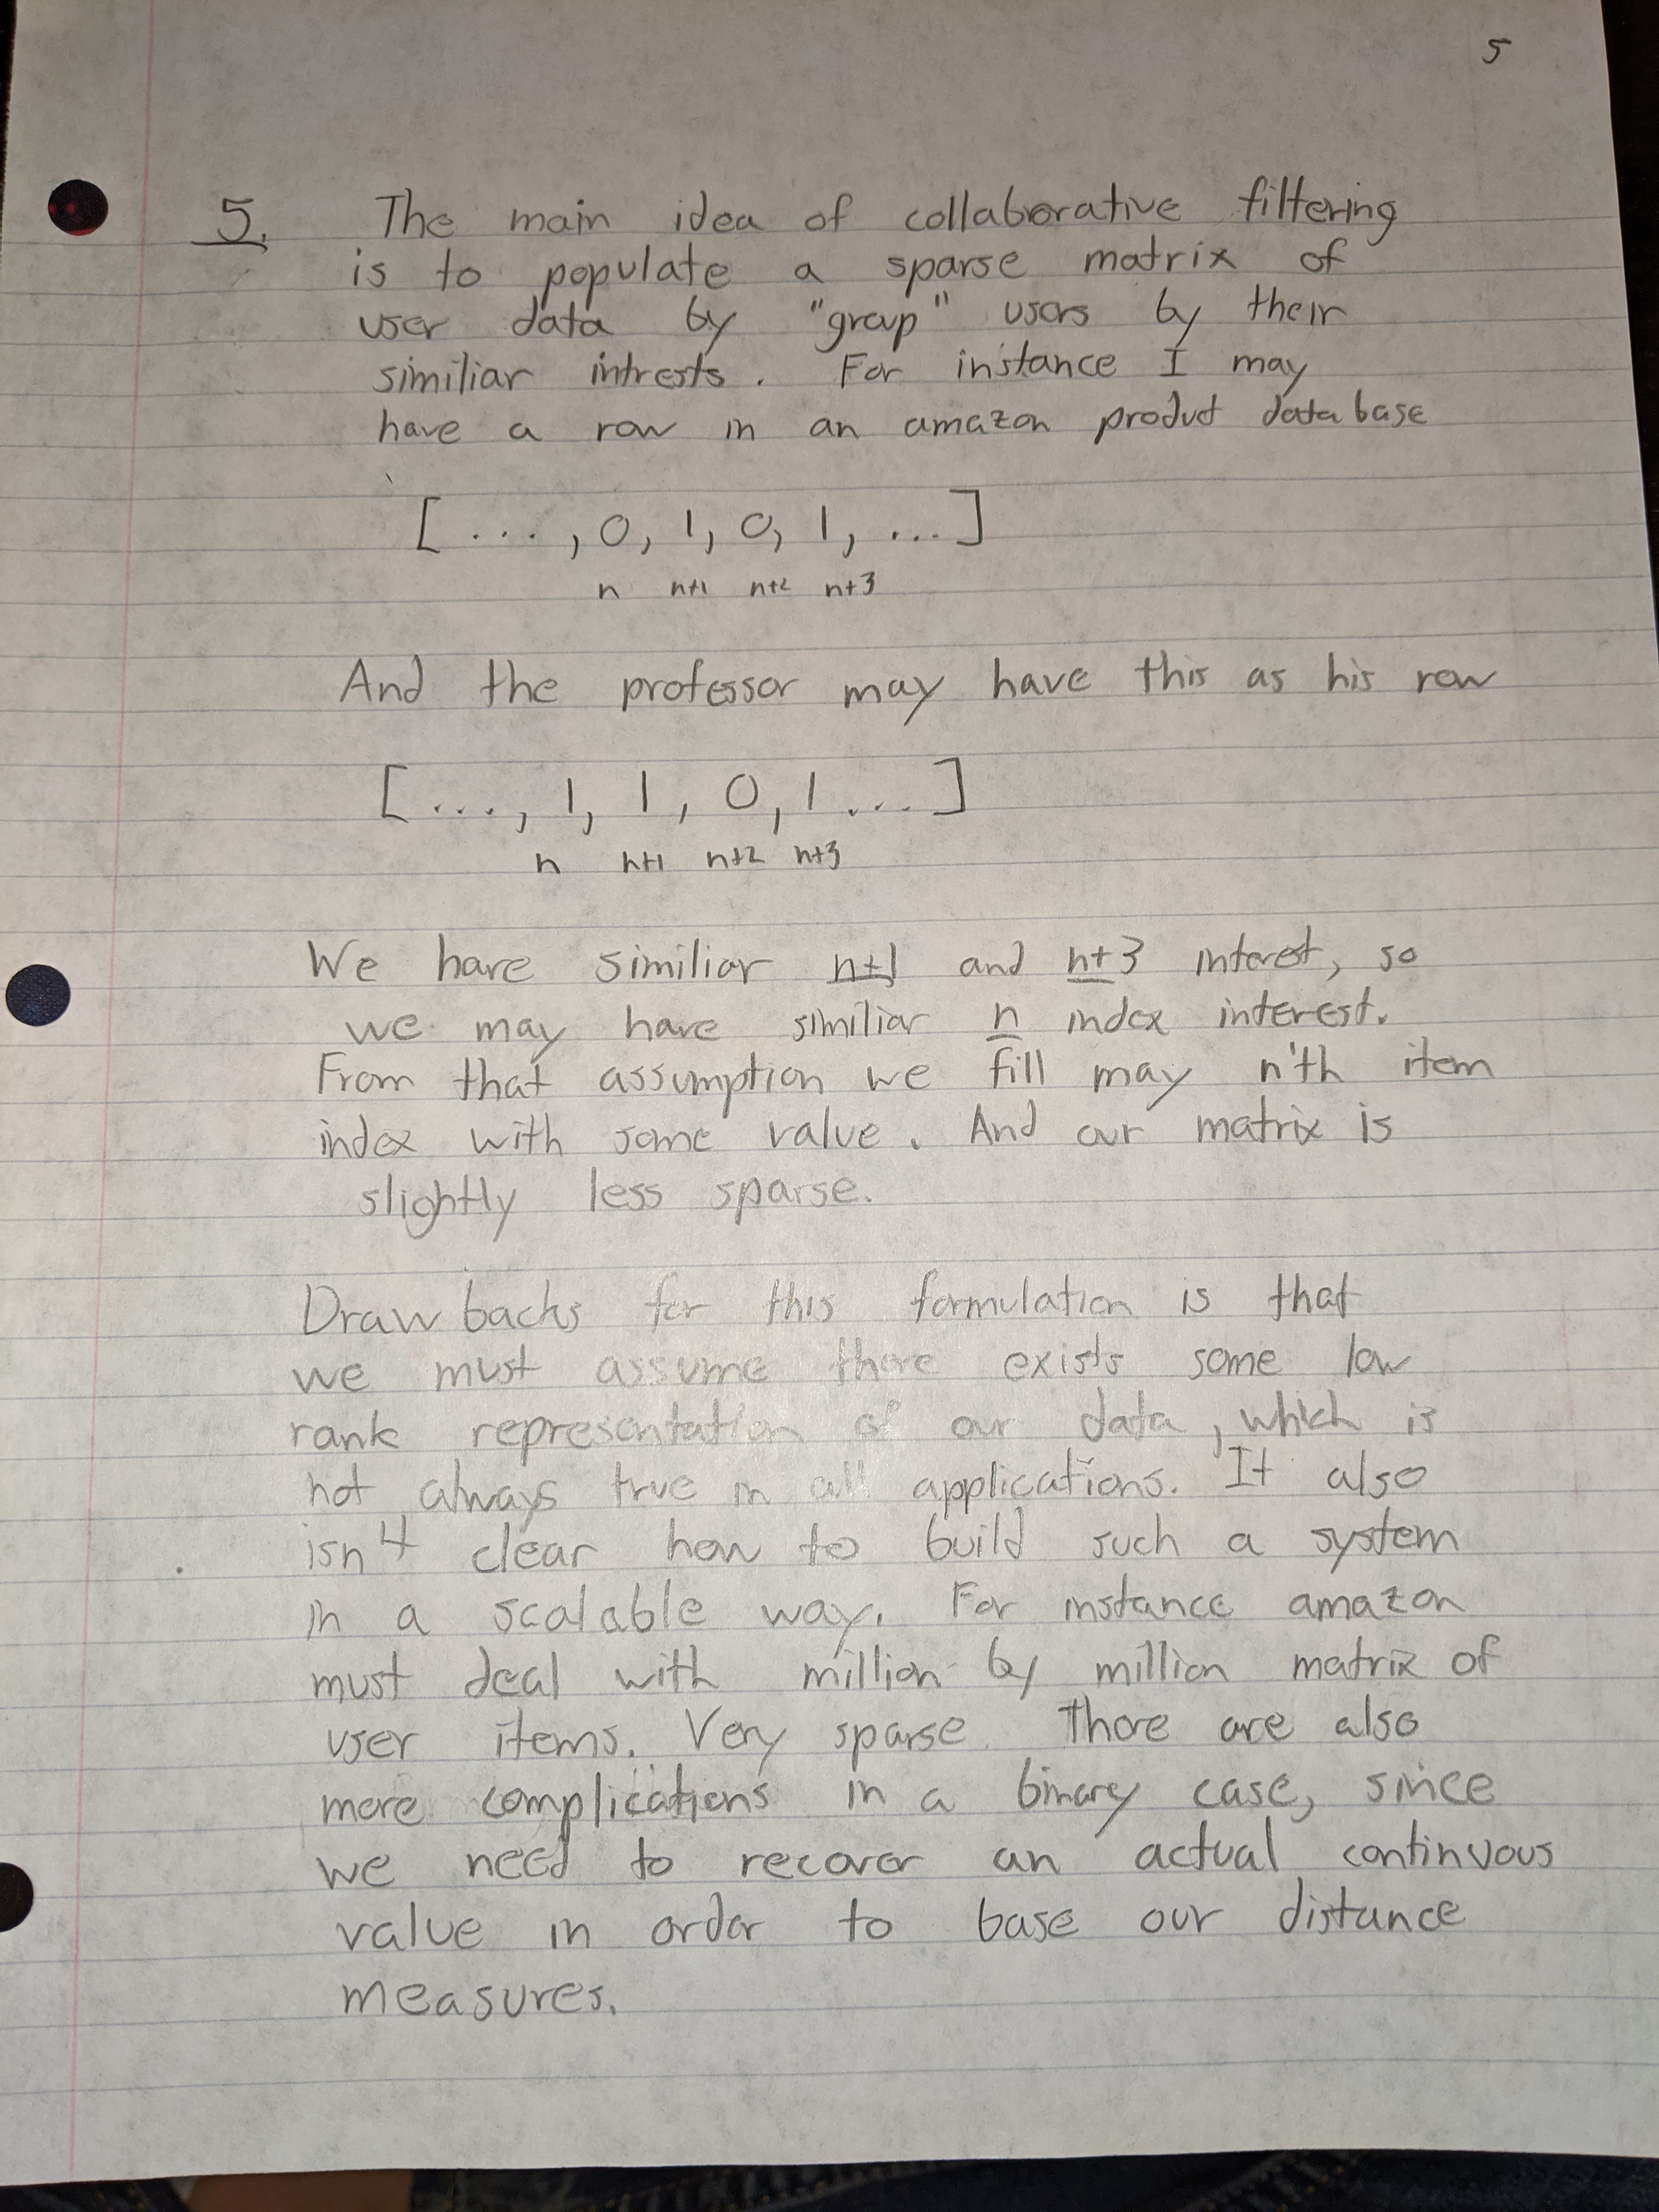 5
5. The main idea of collaborative filtering
is to populate a sparse matrix of
user data by "group" users by their
similiar intrests. For instance I may
have a row in an amazon product database
[ ... , 0, 1, 0, 1, ... ]
n n+1 n+2 n+3
And the professor may have this as his row
[ ... , 1, 1, 0, 1 ... ]
n n+1 n+2 n+3
We have similiar n+1 and n+3 interest, so
we may have similiar n index interest.
From that assumption we fill may n'th item
index with some value. And our matrix is
slightly less sparse.
Drawbacks for this formulation is that
we must assume there exists some low
rank representation of our data, which is
not always true in all applications. It also
isn't clear how to build such a system
in a scalable way. For instance amazon
must deal with million by million matrix of
user items. Very sparse. There are also
more complications in a binary case, since
we need to recover an actual continuous
value in order to base our distance
measures.